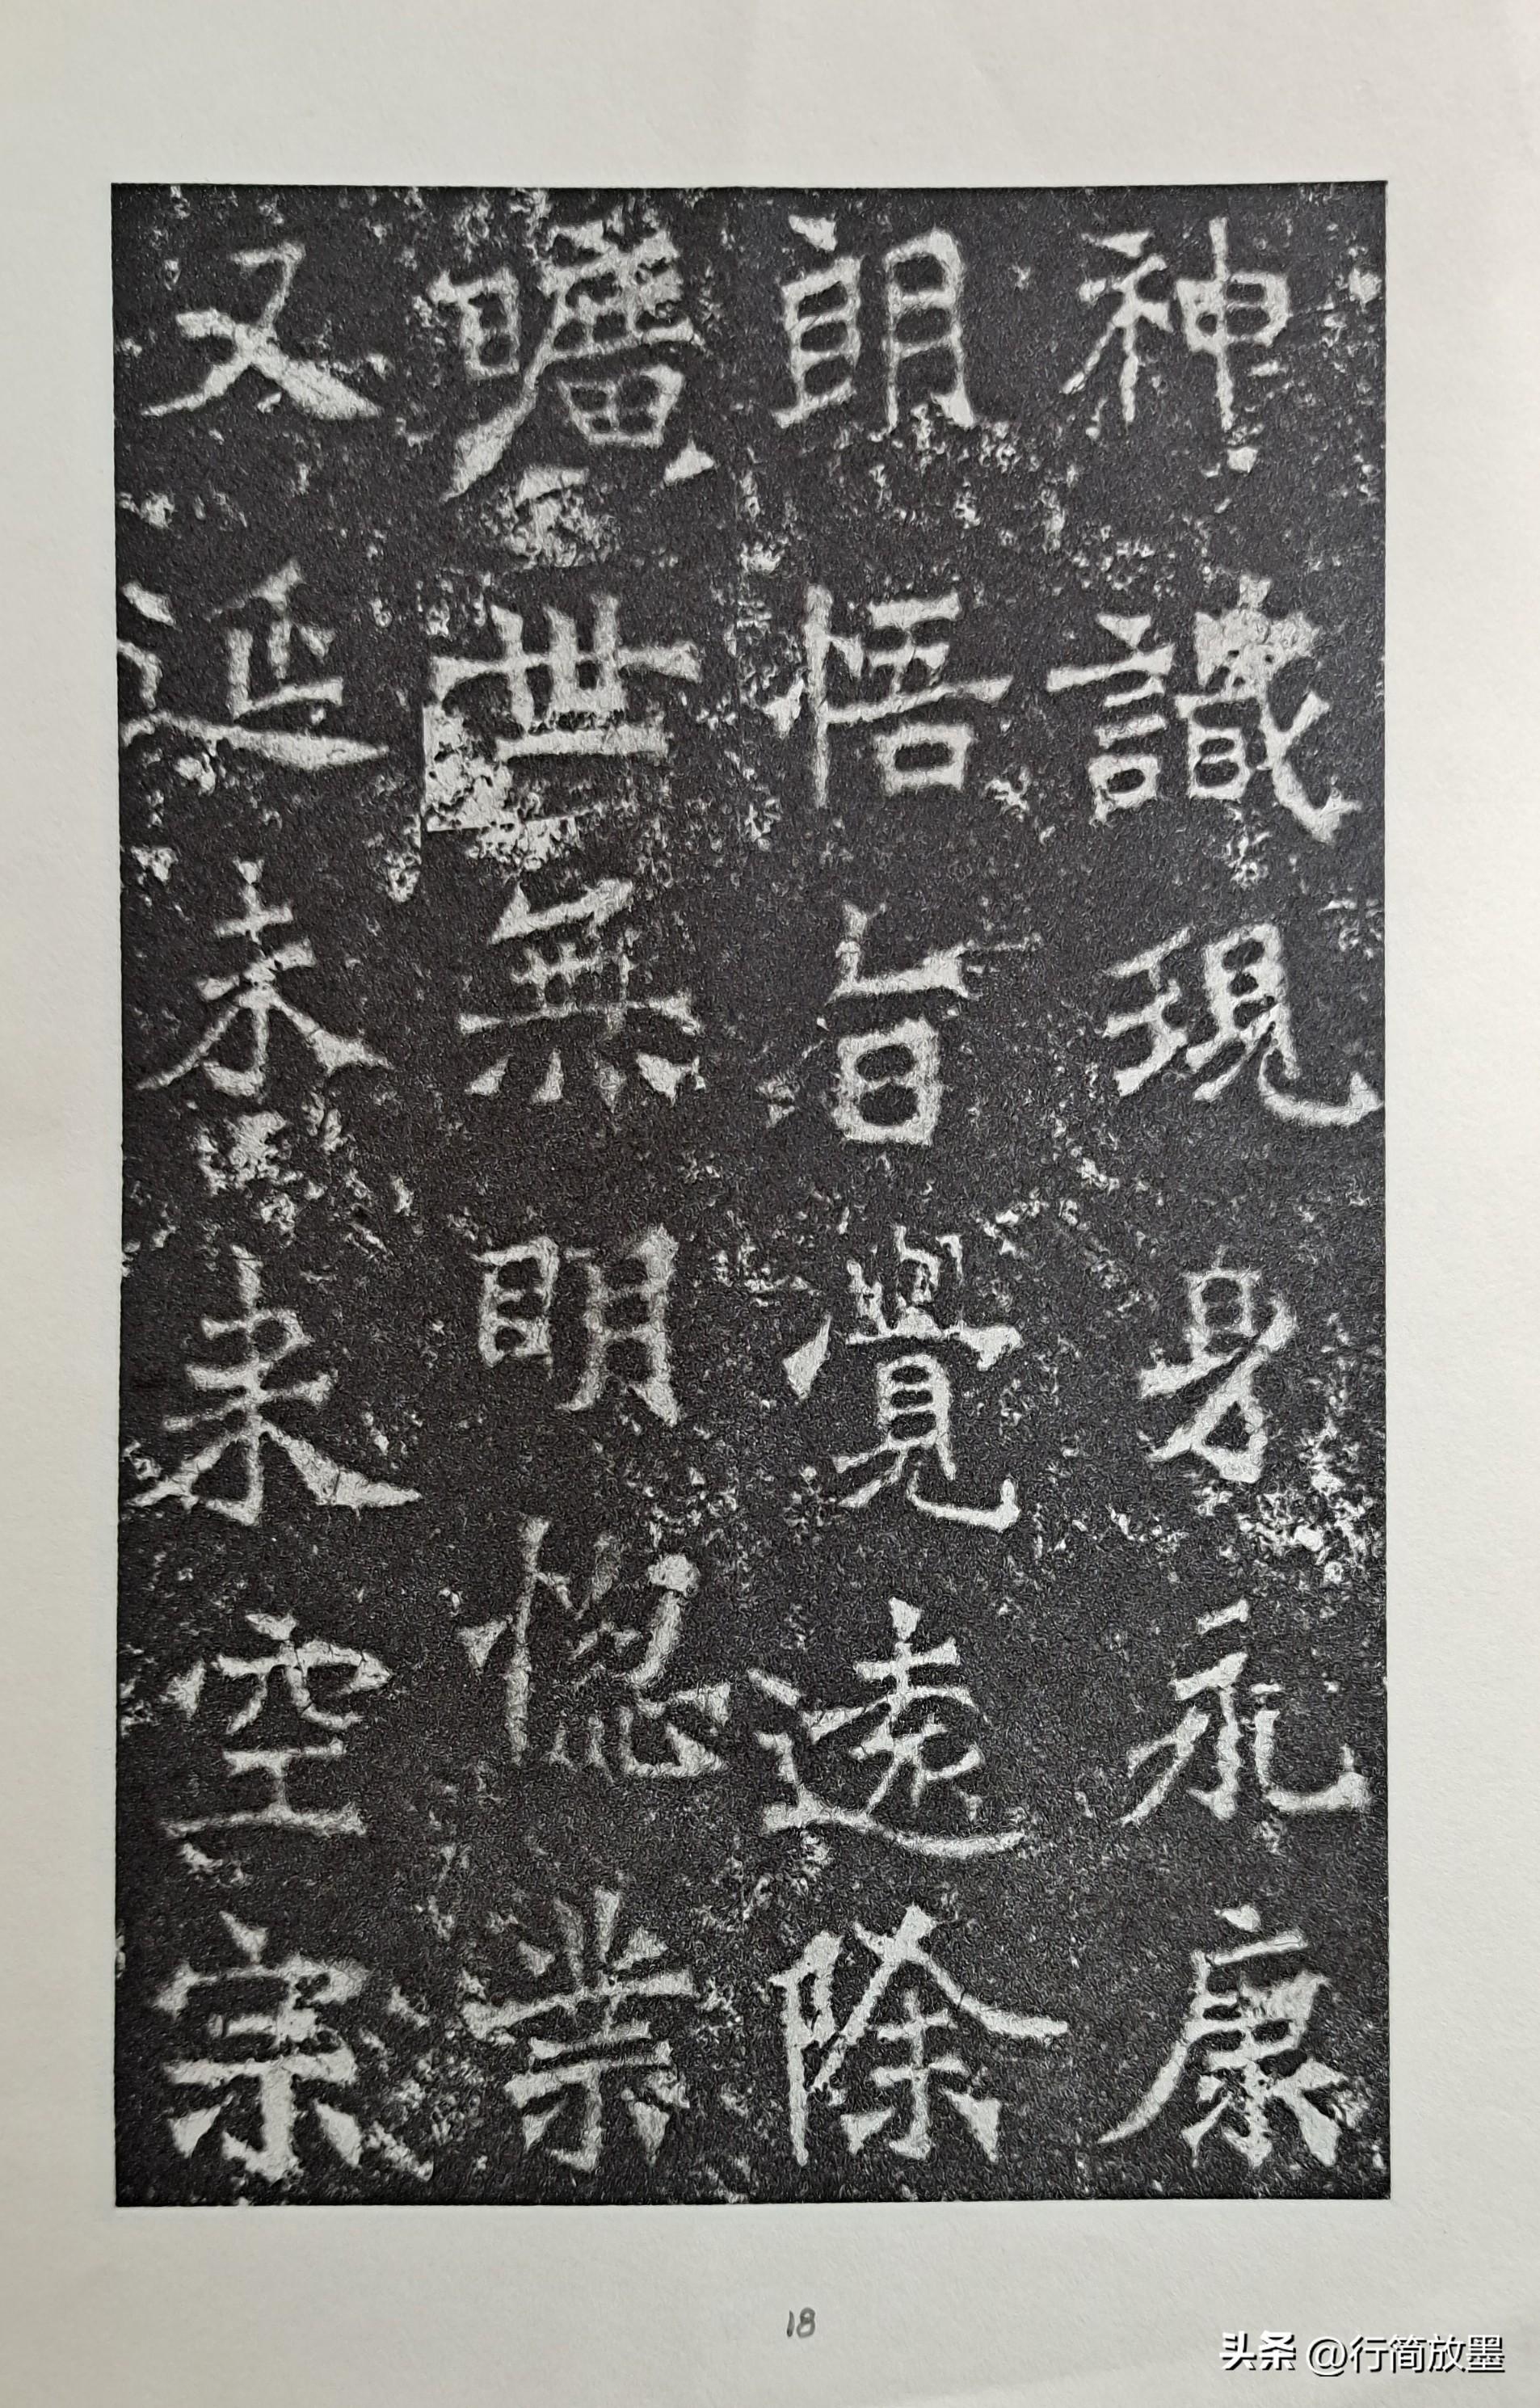 神識現身永康
朗悟旨覺遠除
曠世無明惚崇
又延未來空宗
18
头条 @行简放墨